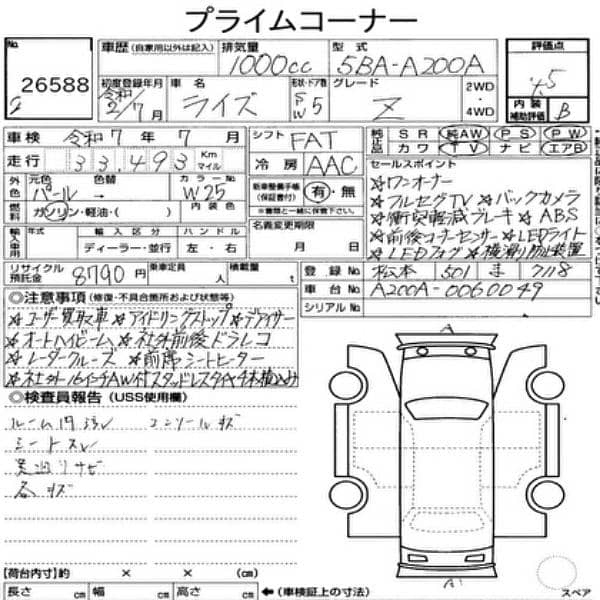 プライムコーナー
No. 26588
車歴 (自家用以外は記入) 排気量 1000cc 型式 5BA-A200A 評価点 4.5
初度登録年月 令和 2/7月 車名 ライズ 形状・ドア数 SW 5 グレード Z 2WD・4WD 内装補助評価 B
車検 令和 7年 7月 シフト FAT 純正 SR 純AW PS PW
走行 33,493 Km マイル 冷房 AAC 純正 カワ TV ナビ エアB
外色 元色 パール 色替 → カラーNo W25 新車整備手帳(保証書付) 有・無 ※書類と一緒に保管下さい。
燃料 ガソリン・軽油・( ) 内装色 名義変更期限 月 日
輸入車用 年式 輸入区分 ディーラー・並行 ハンドル 左・右
セールスポイント
☆ワンオーナー
☆フルセグTV ☆バックカメラ
☆衝突軽減ブレーキ ☆ABS
☆前後コーナーセンサー ☆LEDライト
☆LEDフォグ ☆横滑り防止装置
リサイクル預託金 8790円 乗車定員 人 積載量 t
登録No. 松本 501 ま 7118
車台No. A200A-0060049
シリアルNo.
◎注意事項 (修復・不具合箇所および状態等)
☆ユーザー買取車 ☆アイドリングストップ ☆デアイサー
☆オートハイビーム ☆社外前後ドラレコ
☆レーダークルーズ ☆前席シートヒーター
☆社外16インチAW付スタッドレスタイヤ4本積込み
◎検査員報告 (USS使用欄)
ルーム内汚レ コンソールキズ
シートスレ
各キズ
【荷台内寸】約 × × (cm)
長さ cm 幅 cm 高さ cm ←(車検証上の寸法)
A
A
スペア